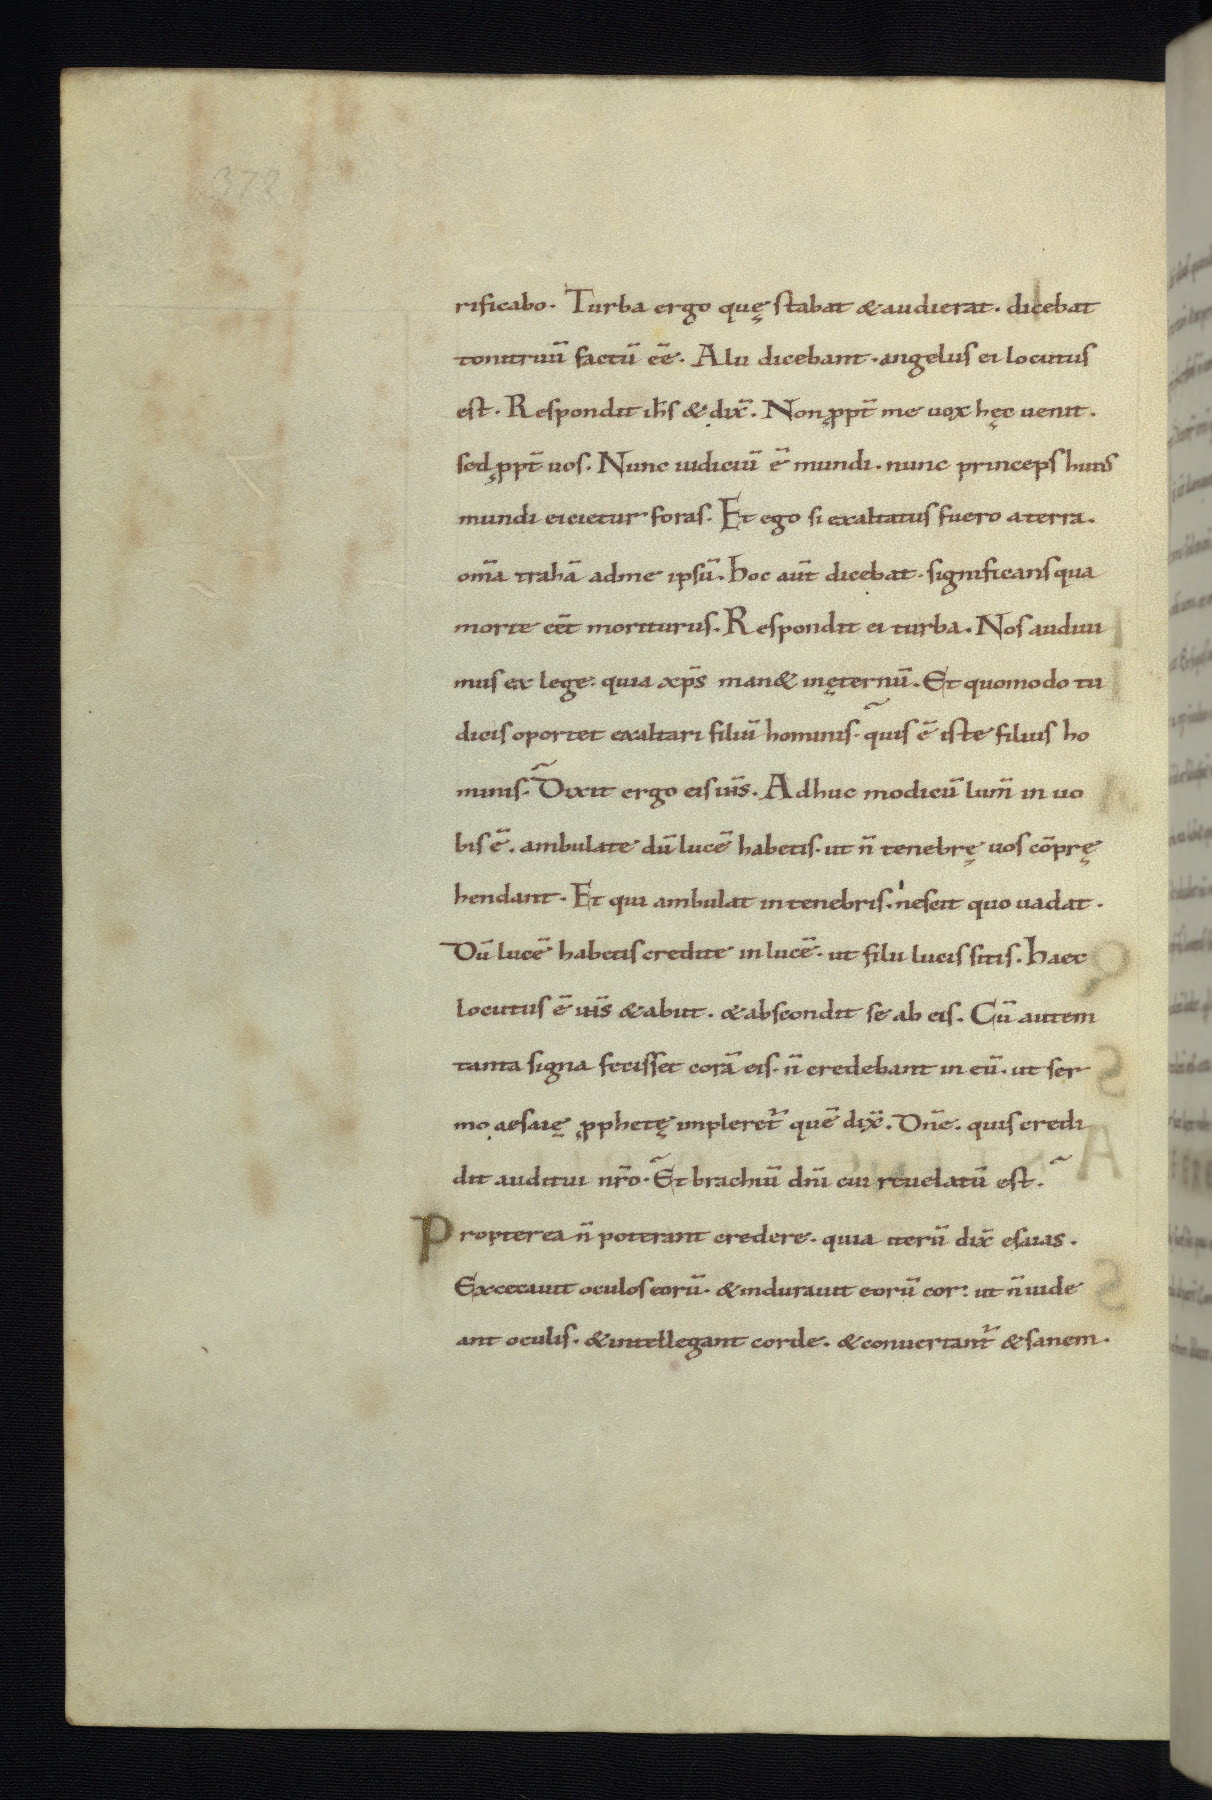 372
rificabo. Turba ergo quę stabat & audierat. dicebat
tonitruū factū eē. Alii dicebant. angelus ei locutus
est. Respondit ih̄s & dix̄. Non ꝓpt̄ me uox hęc uenit.
sed ꝓpt̄ uos. Nunc iudiciū ē mundi. nunc princeps huius
mundi eicietur foras. Et ego si exaltatus fuero a terra.
om̄a trahā ad me ipsū. hoc aūt dicebat. significans qua
morte eēt moriturus. Respondit ei turba. Nos audiui
mus ex lege: quia xp̄s man& in ęternū. Et quomodo tu
dicis oportet exaltari filiū hominis. quis ē iste filius ho
minis. Dixit ergo eis ih̄s. Adhuc modicū lum̄ in uo
bis ē. ambulate dū lucē habetis. ut n̄ tenebrę uos cōprę
hendant. Et qui ambulat in tenebris. nescit quo uadat.
Dū lucē habetis credite in lucē. ut filii lucis sitis. haec
locutus ē ih̄s & abiit. & abscondit se ab eis. Cū autem
tanta signa fecisset corā eis. n̄ credebant in eū. ut ser
mo aesaię ꝓphetę impleret̄ quē dix̄. Dn̄e. quis credi
dit auditui nr̄o. Et brachiū dn̄i cui reuelatū est.
Propterea n̄ poterant credere. quia iterū dix̄ esaias.
Excecauit oculos eorū. & indurauit eorū cor: ut n̄ uide
ant oculis. & intellegant corde. & conuertant̄ & sanem.